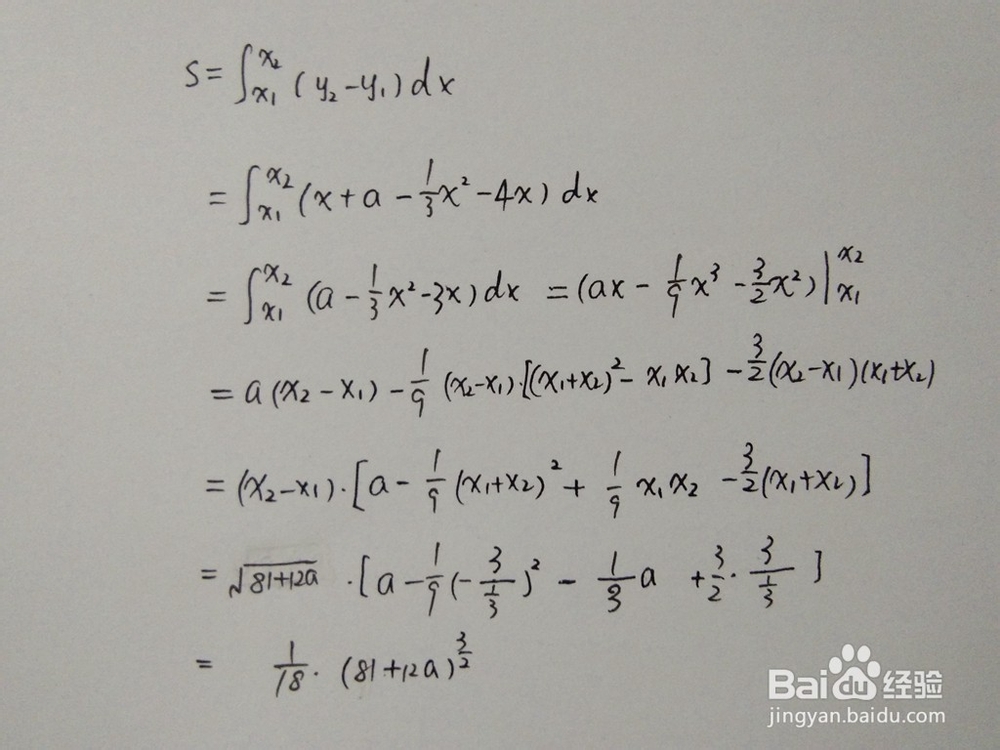 S = ∫_{x1}^{x2} (y₂ - y₁) dx
= ∫_{x1}^{x2} (x + a - 1/3 x² - 4x) dx
= ∫_{x1}^{x2} (a - 1/3 x² - 3x) dx = (ax - 1/9 x³ - 3/2 x²) |_{x1}^{x2}
= a (x₂ - x₁) - 1/9 (x₂ - x₁)·[(x₁ + x₂)² - x₁x₂] - 3/2 (x₂ - x₁)(x₁ + x₂)
= (x₂ - x₁)·[a - 1/9 (x₁ + x₂)² + 1/9 x₁x₂ - 3/2 (x₁ + x₂)]
= √(81+12a) ·[a - 1/9 (-3/(1/3))² - 1/3 a + 3/2 · 3/(1/3)]
= 1/18 · (81 + 12a)^{3/2}
Baidu 经验
jingyan.baidu.com